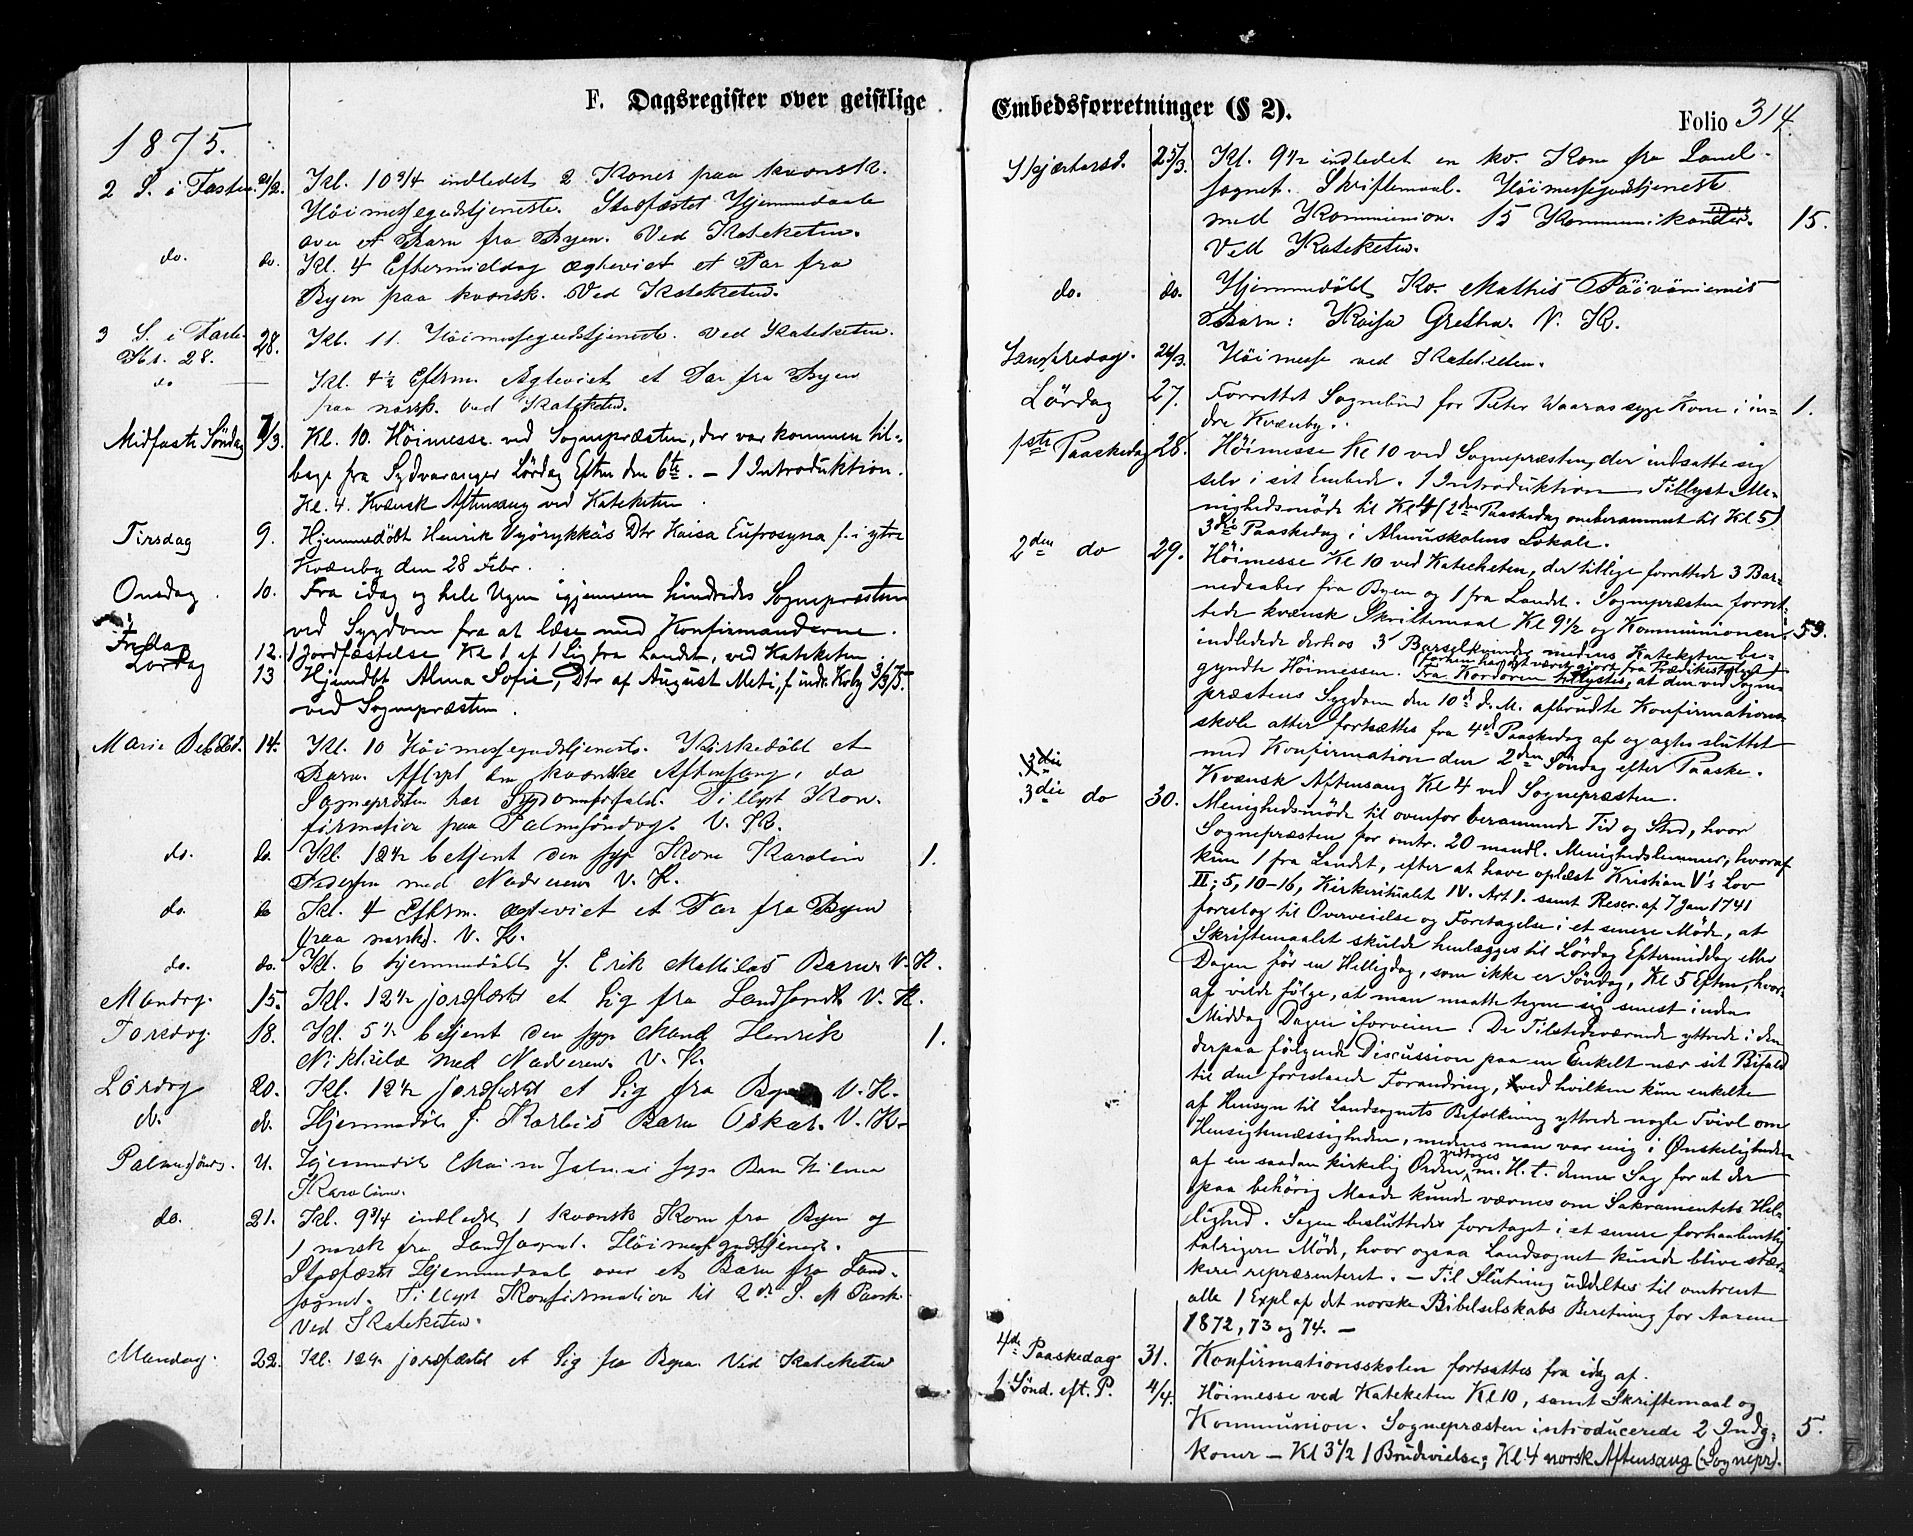 F. Dagsregister over geistlige
1875.
2 S. i Fasten 21/2. Kl. 10 3/4 indledet 2 Koner paa kvænsk.
Höimessegudstjeneste. Stadfæstet Hjemmedaab
over et Barn fra Byen. Ved Kateketen.
do. do. Kl. 4 Eftermiddag ægteviet et Par fra
Byen paa kvænsk. Ved Kateketen.
3 S. i Faste 28. Kl. 11. Höimessegudstjeneste. Ved Kateketen.
do Kl. 4 1/2 Efterm. Ægteviet et Par fra Byen
paa norsk. Ved Kateketen.
Midfaste Söndag 7/3. Kl. 10. Höimesse ved Sognepræsten, der var kommen til-
bage fra Sydvaranger Lördag Eftm den 6te. — 1 Introduktion.
Kl. 4. Kvænsk Aftensang ved Kateketen
Tirsdag 9. Hjemmedöbt Henrik Vyörykkäs Dtr Kaisa Eufrosyna f. i ytre
Kvænby den 28 Febr.
Onsdag. 10. Fra idag og hele Ugen igjennem hindredes Sognepræsten
ved Sygdom fra at læse med Konfirmanderne.
Fredag 12. 1 Jordfæstelse Kl 1 af 1 Lig fra Landet, ved Kateketen.
Lördag 13 Hjemdbt Alma Sofie, Dtr af August Meti, f. indr. Kvby 3/3 75.
ved Sognepræsten.
Marie Beb.d. 14. Kl. 10 Höimessegudstjeneste. Kirkedöbt et
Barn. Aflyst den kvænske Aftensang, da
Sognepræsten har Sygdomsforfald. Tillyst Kon-
firmation paa Palmesöndag. V. K.
do. do. Kl. 12 1/2 betjent den syge Kone Karolin
Pedersen med Nadveren V. K. 1.
do. do Kl. 4 Efterm. ægteviet et Par fra Byen
(paa norsk). V. K.
do. do. Kl. 6 hjemmedöbt J. Erik Mattilas Barn. V. K.
Mandag. 15. Kl. 12 1/2 jordfæstet et Lig fra Landsognet V. K.
Torsdag. 18. Kl. 5 1/2 betjent den syge Mand Henrik
med Nadveren. V. K. 1.
Lördag 20. Kl. 12 1/2 jordfæstet et Lig fra Byen V. K.
do. do. Hjemmedöbt J. Barn Oskar. V. K.
Palmesönd. 21. Hjemmedöbt syge Barn Hilma
Karoline.
do. 21. Kl. 9 3/4 indledet 1 kvænsk Kone fra Byen og
1 norsk fra Landsognet. Höimessegudstjeneste.
Stadfæstet Hjemmedaab over et Barn fra Land-
sognet. Tillyst Konfirmation til 2den S. e. Paaske.
Ved Kateketen.
Mandag. 22. Kl. 12 1/2 jordfæstet et Lig fra Byen. Ved Kateketen
Embedsforretninger (§ 2).
Folio 314.
Skjærtorsd. 25/3. Kl. 9 1/2 indledet en kv. Kone fra Land-
sognet. Skriftemaal. Höimessegudstjeneste
med Kommunion. 15 Kommunikanter. 15.
Ved Kateketen.
do. do. Hjemmedöbt Kv. Mathis Päiväniemis
Barn: Kaisa Gretha. V. K.
Langfredag. 26/3. Höimesse ved Kateketen.
Lördag 27. Forrettet Sognebud for Peter Waaras syge Kone i in-
dre Kvænby. 1.
1ste Paaskedag 28. Höimesse Kl 10 ved Sognepræsten, der indsatte sig
selv i sit Embede. 1 Introduktion. Tillyst Me-
nighedsmöde til Kl 4 (2den Paaskedag omberammet til Kl 5)
3die Paaskedag i Almuskolens Lokale.
2den do 29. Höimesse Kl 10 ved Kateketen, der tillige forrettede 3 Bar-
nedaaber fra Byen og 1 fra Landet. Sognepræsten forret-
tede kvænsk Skriftemaal Kl 9 1/2 og Kommunionen, 53.
indledede derhos 3 Barselkvinder medens Kateketen be-
gyndte Höimessen. Fra Kordören tillystes, at den ved Sogne-
præstens Sygdom den 10d d. M. afbrudte Konfirmations-
skole atter fortsættes fra 4d Paaskedag af og agtes sluttet
med Konfirmation den 2den Söndag efter Paaske.
Kvænsk Aftensang Kl 4 ved Sognepræsten.
3die
3die do 30. Menighedsmöde til ovenfor berammede Tid og Sted, hvor
Sognepræsten for omtr. 20 mandl. Menighedslemmer, hvoraf
kun 1 fra Landet, efter at have oplæst Kristian V's Lov
II; 5, 10-16, Kirkeritualet IV. Art 1. samt Rescr. af 7 Jan 1741
foreslog til Overveielse og Foretagelse i et senere Möde, at
Skriftemaalet skulde henlægges til Lördag Eftermiddag eller
Dagen för en Helligdag, som ikke er Söndag, Kl 5 Eftm, hvor-
af vilde fölge, at man maatte tegne sig senest inden
Middag Dagen iforveien. De Tilstedeværende yttrede i den
derpaa fölgende Discussion paa en Enkelt nær sit Bifald
til den foreslaaede Forandring, ved hvilken kun enkelte
af Hensyn til Landsognets Befolkning yttrede nogle Tvivl om
Hensigtsmæssigheden, medens man var enig i Ønskeligheden
af en saadan kirkelig Orden m. H. t. denne Sag for at der
paa behörig Maade kunde værnes om Sakramentets Hel-
lighed. Sagen besluttedes foretaget i et senere forhaabentlig
talrigere Möde, hvor ogsaa Landsognet kunde blive stær-
kere repræsenteret. — Til Slutning uddeltes til omtrent
alle 1 Expl af det norske Bibelselskabs Beretning for Aarene
1872, 73 og 74. —
4de Paaskedag 31. Konfirmationsskolen fortsattes fra idag af.
1. Sönd. eft. P. 4/4. Höimesse ved Kateketen Kl 10, samt Skriftemaal og
Kommunion. Sognepræsten introducerede 2 Indg. 5.
koner — Kl 3 1/2 1 Brudevielse; Kl 4 norsk Aftensang (Sognepr).